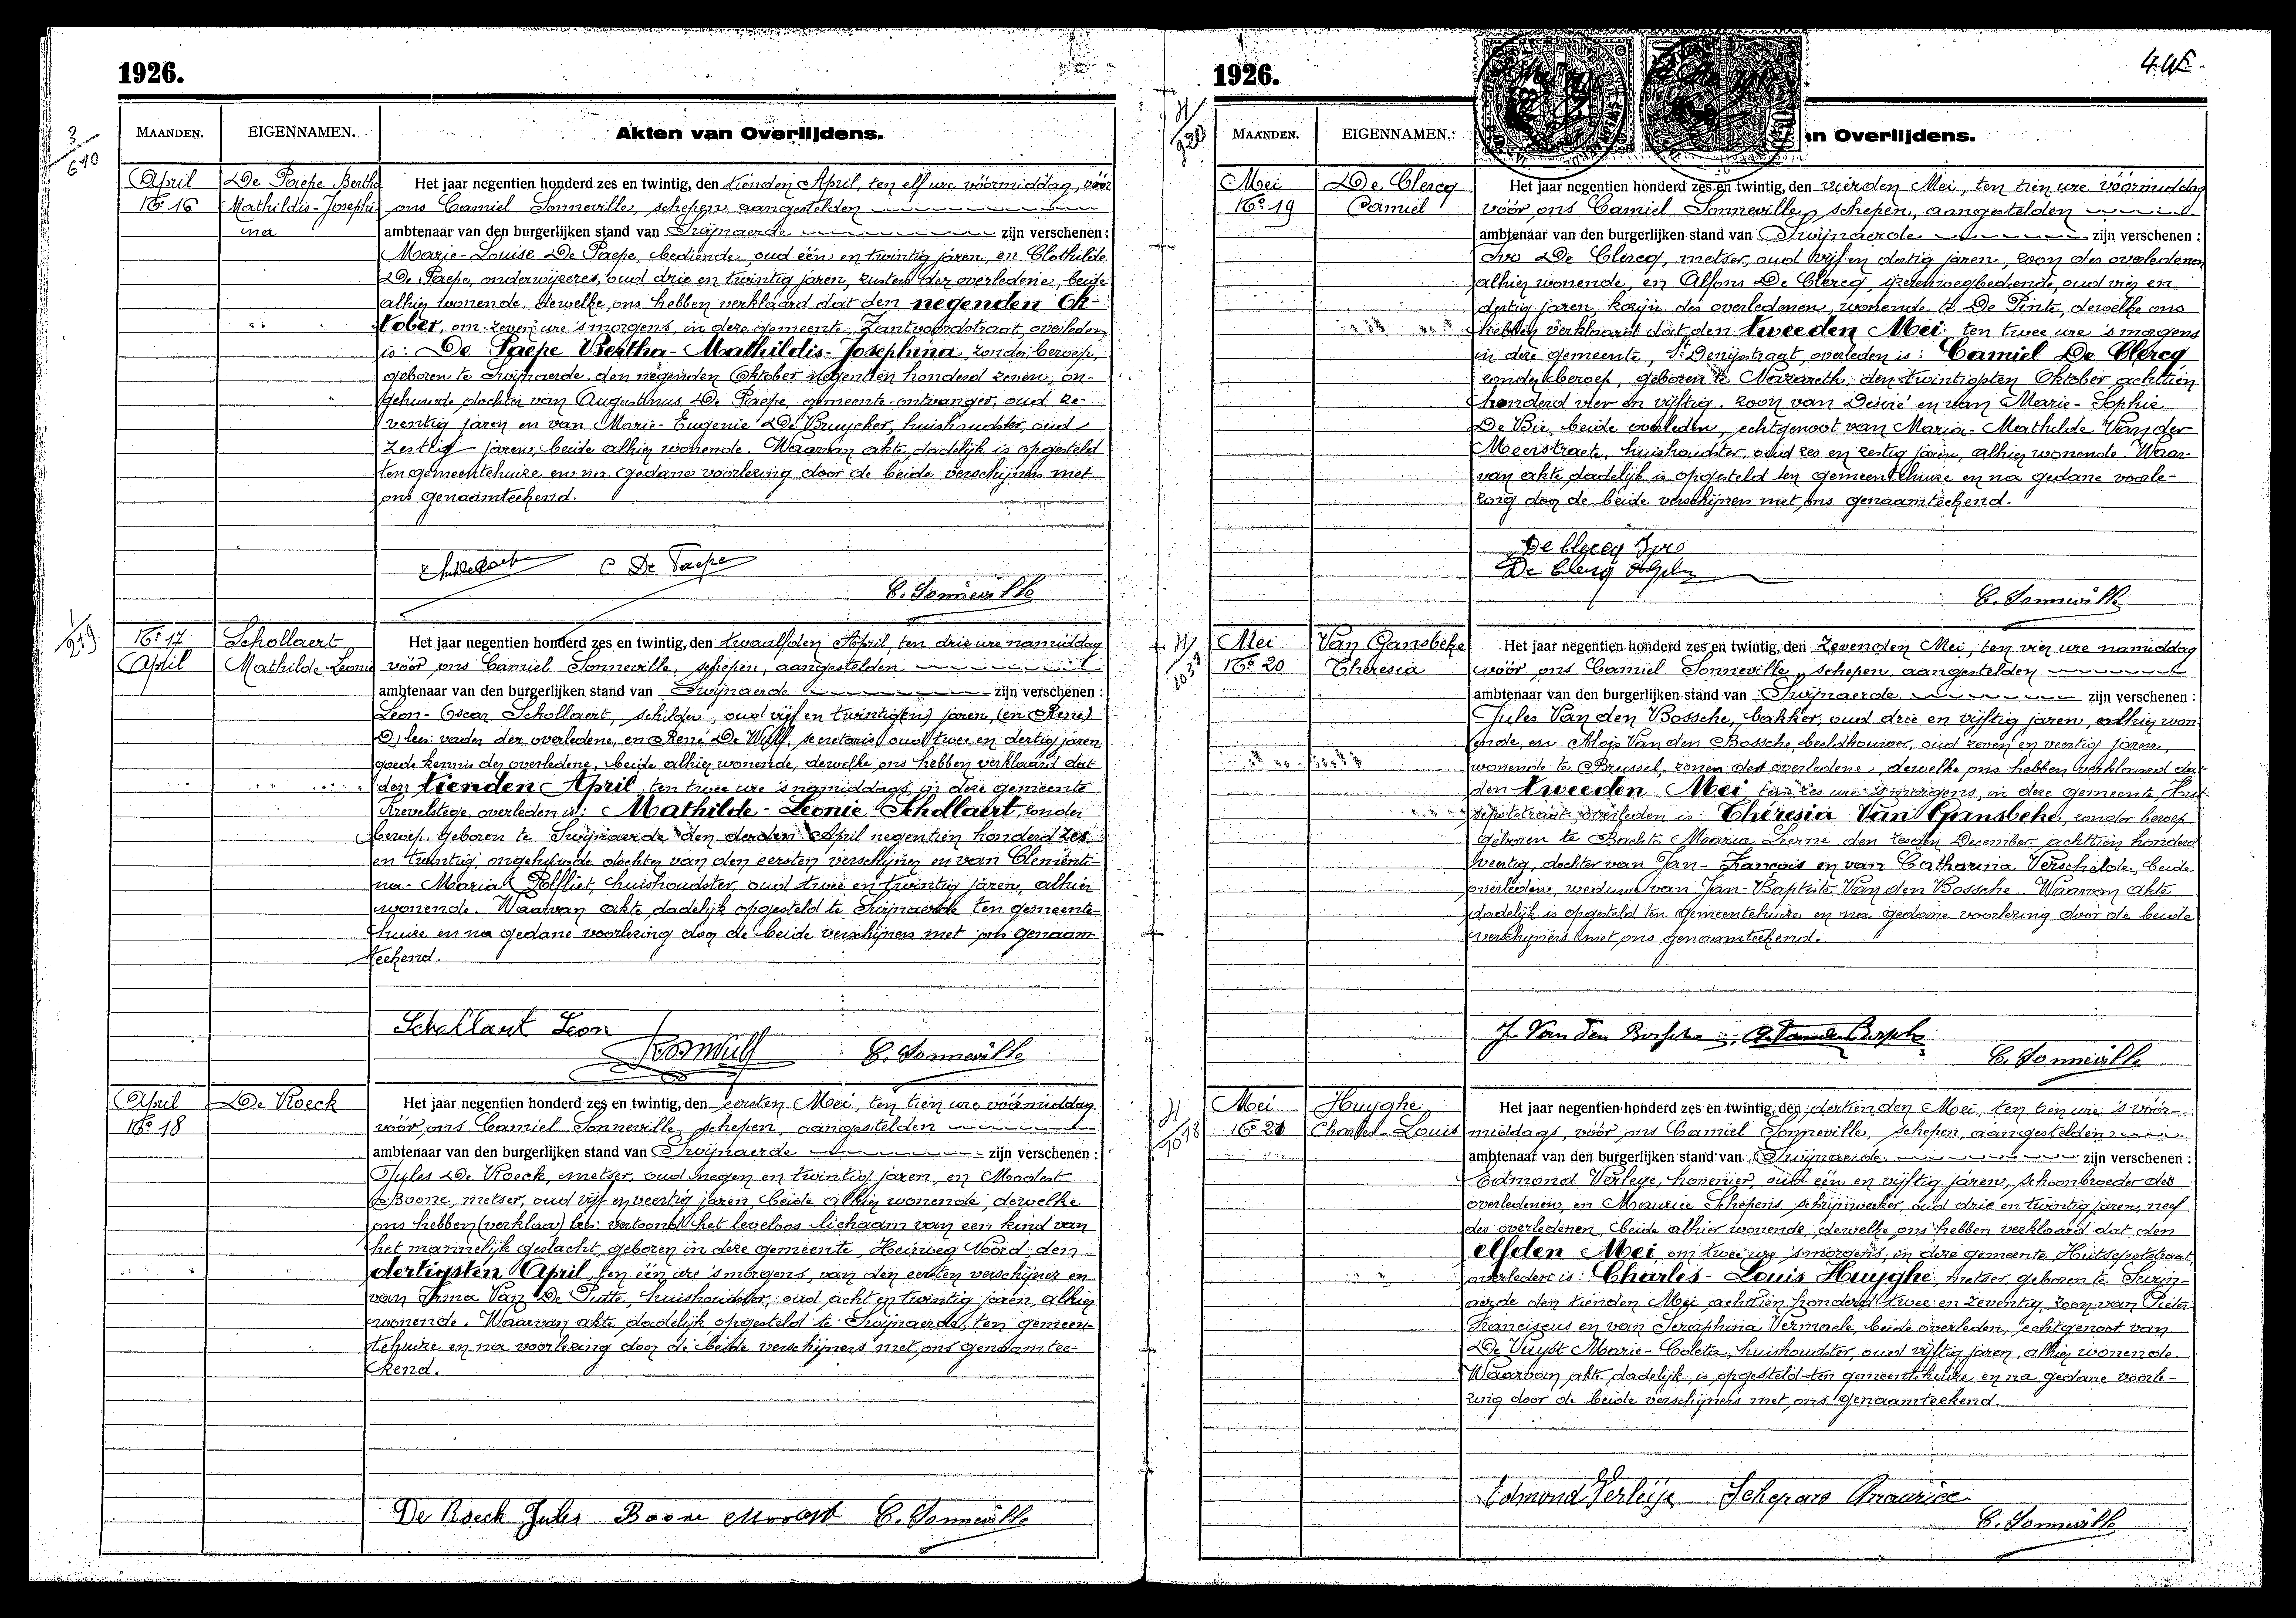 1926.
MAANDEN.
EIGENNAMEN.
Akten van Overlijdens.
3
610
April
No 16
De Paepe Bertha
Mathildis-Josephi-
na
Het jaar negentien honderd zes en twintig, den tienden April, ten elf ure vóórmiddag, vóór
ons Camiel Sonneville, schepen, aangestelden
ambtenaar van den burgerlijken stand van Swijnaerde zijn verschenen :
Marie-Louise De Paepe, bediende, oud één en twintig jaren, en Clothilde
De Paepe, onderwijzeres, oud drie en twintig jaren, zusters der overledene, beide
alhier wonende, dewelke ons hebben verklaard dat den negenden Ok-
tober, om zeven ure 's morgens, in deze gemeente, Zantvoordstraat, overleden
is: De Paepe Bertha-Mathildis-Josephina, zonder beroep,
geboren te Swijnaerde, den negenden Oktober negentien honderd zeven, on-
gehuwde dochter van Augustinus De Paepe, gemeente-ontvanger, oud ze-
ventig jaren en van Marie-Eugenie De Bruycker, huishoudster, oud
zestig jaren, beide alhier wonende. Waarvan akte dadelijk is opgesteld
ten gemeentehuize en na gedane voorlezing door de beide verschijners met
ons genaamteekend.
C De Paepe
C. Sonneville
1
219
No 17
April
Schollaert
Mathilde-Leonie
Het jaar negentien honderd zes en twintig, den twaalfden April, ten drie ure namiddag
vóór ons Camiel Sonneville, schepen, aangestelden
ambtenaar van den burgerlijken stand van Swijnaerde zijn verschenen :
Leon-Oscar Schollaert, schilder, oud vijf en twintig(en) jaren, (en René)
lees: vader der overledene, en René De Wulf, secretaris oud twee en dertig jaren
goede kennis der overledene, beide alhier wonende, dewelke ons hebben verklaard dat
den tienden April, ten twee ure 's namiddags, in deze gemeente
Krevelstege, overleden is: Mathilde-Leonie Schollaert, zonder
beroep, geboren te Swijnaerde den derden April negentien honderd zes
en twintig, ongehuwde dochter van den eersten verschijner en van Clementi-
na-Maria Polfliet, huishoudster, oud twee en twintig jaren, alhier
wonende. Waarvan akte dadelijk opgesteld te Swijnaerde ten gemeente-
huize en na gedane voorlezing door de beide verschijners met ons genaam-
teekend.
Schollaert Leon
C. Sonneville
April
No 18
De Roeck
Het jaar negentien honderd zes en twintig, den eersten Mei, ten tien ure vóórmiddag
vóór ons Camiel Sonneville, schepen, aangestelden
ambtenaar van den burgerlijken stand van Swijnaerde zijn verschenen :
Jules De Roeck, metser, oud negen en twintig jaren, en Modest
Boone, metser, oud vijf en veertig jaren, beide alhier wonende, dewelke
ons hebben (verklaar) lees: vertoond het leveloos lichaam van een kind van
het mannelijk geslacht, geboren in deze gemeente, Heirweg Noord, den
dertigsten April, ten één ure 's morgens, van den eersten verschijner en
van Irma Van De Putte, huishoudster, oud acht en twintig jaren, alhier
wonende. Waarvan akte dadelijk opgesteld te Swijnaerde, ten gemeen-
tehuize en na voorlezing door de beide verschijners met ons genaamtee-
kend.
De Roeck Jules Boone Modest C. Sonneville
1926.
4.
MAANDEN.
EIGENNAMEN.
an Overlijdens.
920
Mei
No 19
De Clercq
Camiel
Het jaar negentien honderd zes en twintig, den vierden Mei, ten tien ure vóórmiddag
vóór ons Camiel Sonneville, schepen, aangestelden
ambtenaar van den burgerlijken stand van Swijnaerde zijn verschenen :
Ivo De Clercq, metser, oud vijf en dertig jaren, zoon des overledenen
alhier wonende, en Alfons De Clercq, ijzerenwegbediende, oud vier en
dertig jaren, kozijn des overledenen, wonende te De Pinte, dewelke ons
hebben verklaard dat den tweeden Mei, ten twee ure 's morgens
in deze gemeente, St Denijsstraat, overleden is: Camiel De Clercq
zonder beroep, geboren te Nazareth, den twintigsten Oktober achttien
honderd vier en vijftig, zoon van Désiré en van Marie-Sophie
De Bie, beide overleden, echtgenoot van Maria-Mathilde Van der
Meerstraete, huishoudster, oud zes en zestig jaren, alhier wonende. Waar-
van akte dadelijk is opgesteld ten gemeentehuize en na gedane voorle-
zing door de beide verschijners met ons genaamteekend.
De Clercq Ivo
De Clercq
C. Sonneville
Mei
No 20
Van Gansbeke
Theresia
Het jaar negentien honderd zes en twintig, den zevenden Mei, ten vier ure namiddag
vóór ons Camiel Sonneville, schepen, aangestelden
ambtenaar van den burgerlijken stand van Swijnaerde zijn verschenen :
Jules Van den Bossche, bakker, oud drie en vijftig jaren, alhier won-
ende, en Aloïs Van den Bossche, beeldhouwer, oud zeven en veertig jaren,
wonende te Brussel, zonen der overledene, dewelke ons hebben verklaard dat
den tweeden Mei, ten zes ure 's morgens, in deze gemeente, Hut-
sepotstraat, overleden is: Thérésia Van Gansbeke, zonder beroep
geboren te Bachte Maria Leerne den zesden December achttien honderd
veertig, dochter van Jan-François en van Catharina Verschelde, beide
overleden, weduwe van Jan-Baptiste Van den Bossche. Waarvan akte
dadelijk is opgesteld ten gemeentehuize en na gedane voorlezing door de beide
verschijners met ons genaamteekend.
J. Van den Bossche A. Van den Bossche
C. Sonneville
Mei
No 21
Huyghe
Charles-Louis
Het jaar negentien honderd zes en twintig, den dertienden Mei, ten tien ure 's vóór-
middags, vóór ons Camiel Sonneville, schepen, aangestelden
ambtenaar van den burgerlijken stand van Swijnaerde zijn verschenen :
Edmond Verleye, hovenier, oud één en vijftig jaren, schoonbroeder des
overledenen, en Maurice Schepens, schrijnwerker, oud drie en twintig jaren, neef
des overledenen, beide alhier wonende, dewelke ons hebben verklaard dat den
elfden Mei, om twee ure 's morgens, in deze gemeente, Hutsepotstraat,
overleden is: Charles-Louis Huyghe, metser, geboren te Swijn-
aerde den tienden Mei achttien honderd twee en zeventig, zoon van Pieter-
Franciscus en van Seraphina Vermaele, beide overleden, echtgenoot van
De Vuyst Marie-Coleta, huishoudster, oud vijftig jaren, alhier wonende.
Waarvan akte dadelijk is opgesteld ten gemeentehuize en na gedane voorle-
zing door de beide verschijners met ons genaamteekend.
Edmond Verleije Schepens Maurice
C. Sonneville